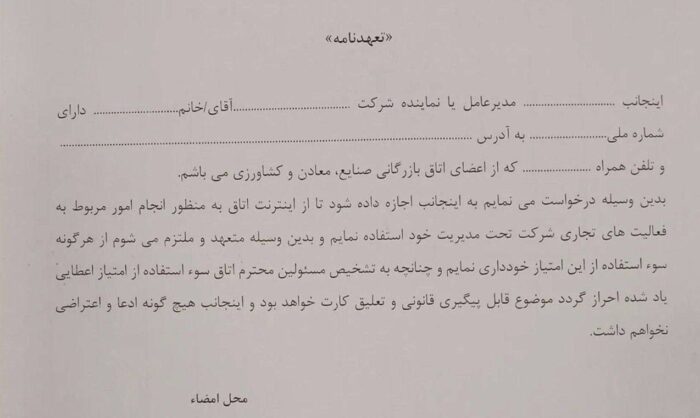 «تعهدنامه»
اینجانب ........................ مدیرعامل یا نماینده شرکت ................................آقای/خانم........................ دارای
شماره ملی...................... به آدرس ................................................................................................................
و تلفن همراه .................. که از اعضای اتاق بازرگانی صنایع، معادن و کشاورزی می باشم.
بدین وسیله درخواست می نمایم به اینجانب اجازه داده شود تا از اینترنت اتاق به منظور انجام امور مربوط به
فعالیت های تجاری شرکت تحت مدیریت خود استفاده نمایم و بدین وسیله متعهد و ملتزم می شوم از هرگونه
سوء استفاده از این امتیاز خودداری نمایم و چنانچه به تشخیص مسئولین محترم اتاق سوء استفاده از امتیاز اعطایی
یاد شده احراز گردد موضوع قابل پیگیری قانونی و تعلیق کارت خواهد بود و اینجانب هیچ گونه ادعا و اعتراضی
نخواهم داشت.
محل امضاء